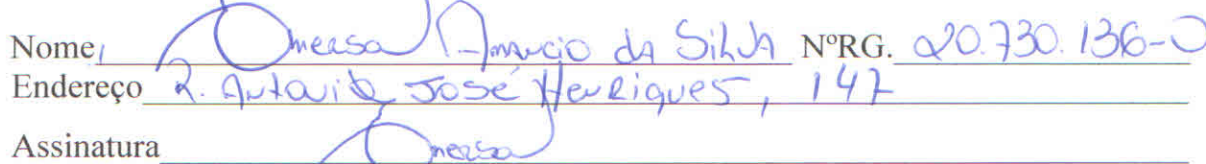 Nome Omerson Amancio da Silva NºRG. 20.730.136-0
Endereço R. Antonio José Henriques, 147
Assinatura Omerson